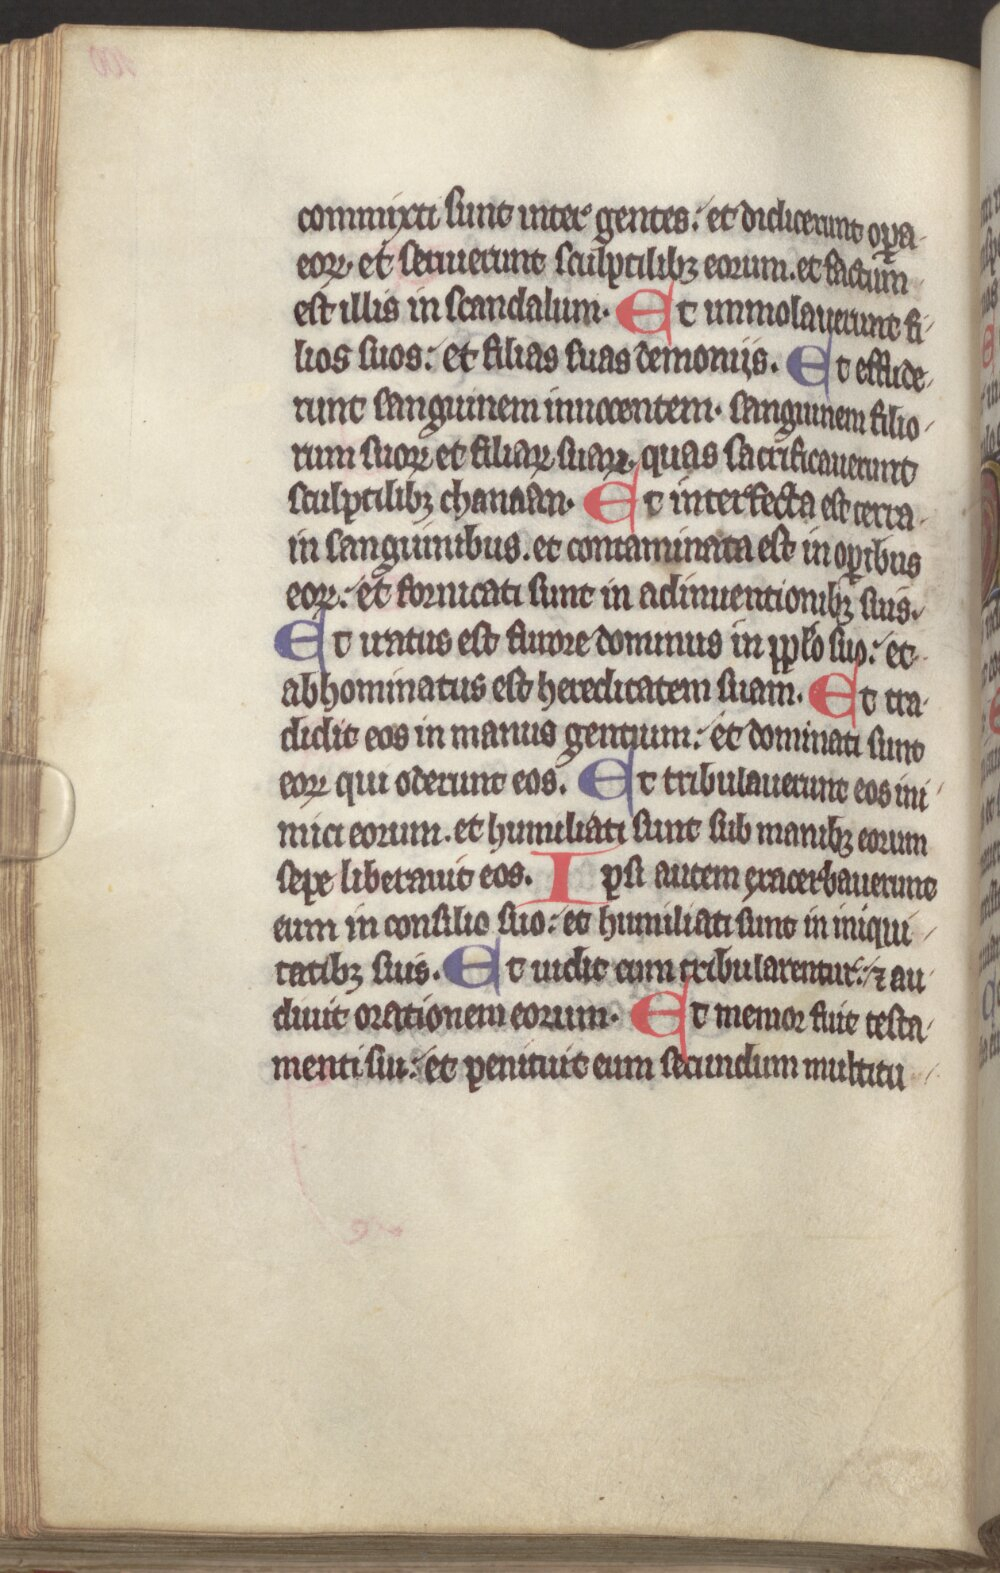 commixti sunt inter gentes: et didicerunt oꝑa
eoꝝ. et seruierunt sculptilibꝫ eorum. et factum
est illis in scandalum. Et immolauerunt fi-
lios suos: et filias suas demoniis. Et effude-
runt sanguinem innocentem. sanguinem filio-
rum suoꝝ et filiaꝝ suaꝝ, quas sacrificauerunt
sculptilibꝫ chanaan. Et interfecta est terra
in sanguinibus. et contaminata est in oꝑibus
eoꝝ: et fornicati sunt in adinuentionibꝫ suis.
Et iratus est furore dominus in pplo suo: et
abhominatus est hereditatem suam. Et tra-
didit eos in manus gentium: et dominati sunt
eoꝝ qui oderunt eos. Et tribulauerunt eos ini-
mici eorum. et humiliati sunt sub manibꝫ eorum
sepe liberauit eos. Ipsi autem exacerbauerunt
eum in consilio suo: et humiliati sunt in iniqui-
tatibꝫ suis. Et uidit cum tribularentur: ⁊ au-
diuit orationem eorum. Et memor fuit testa-
menti sui: et penituit eum secundum multitu-